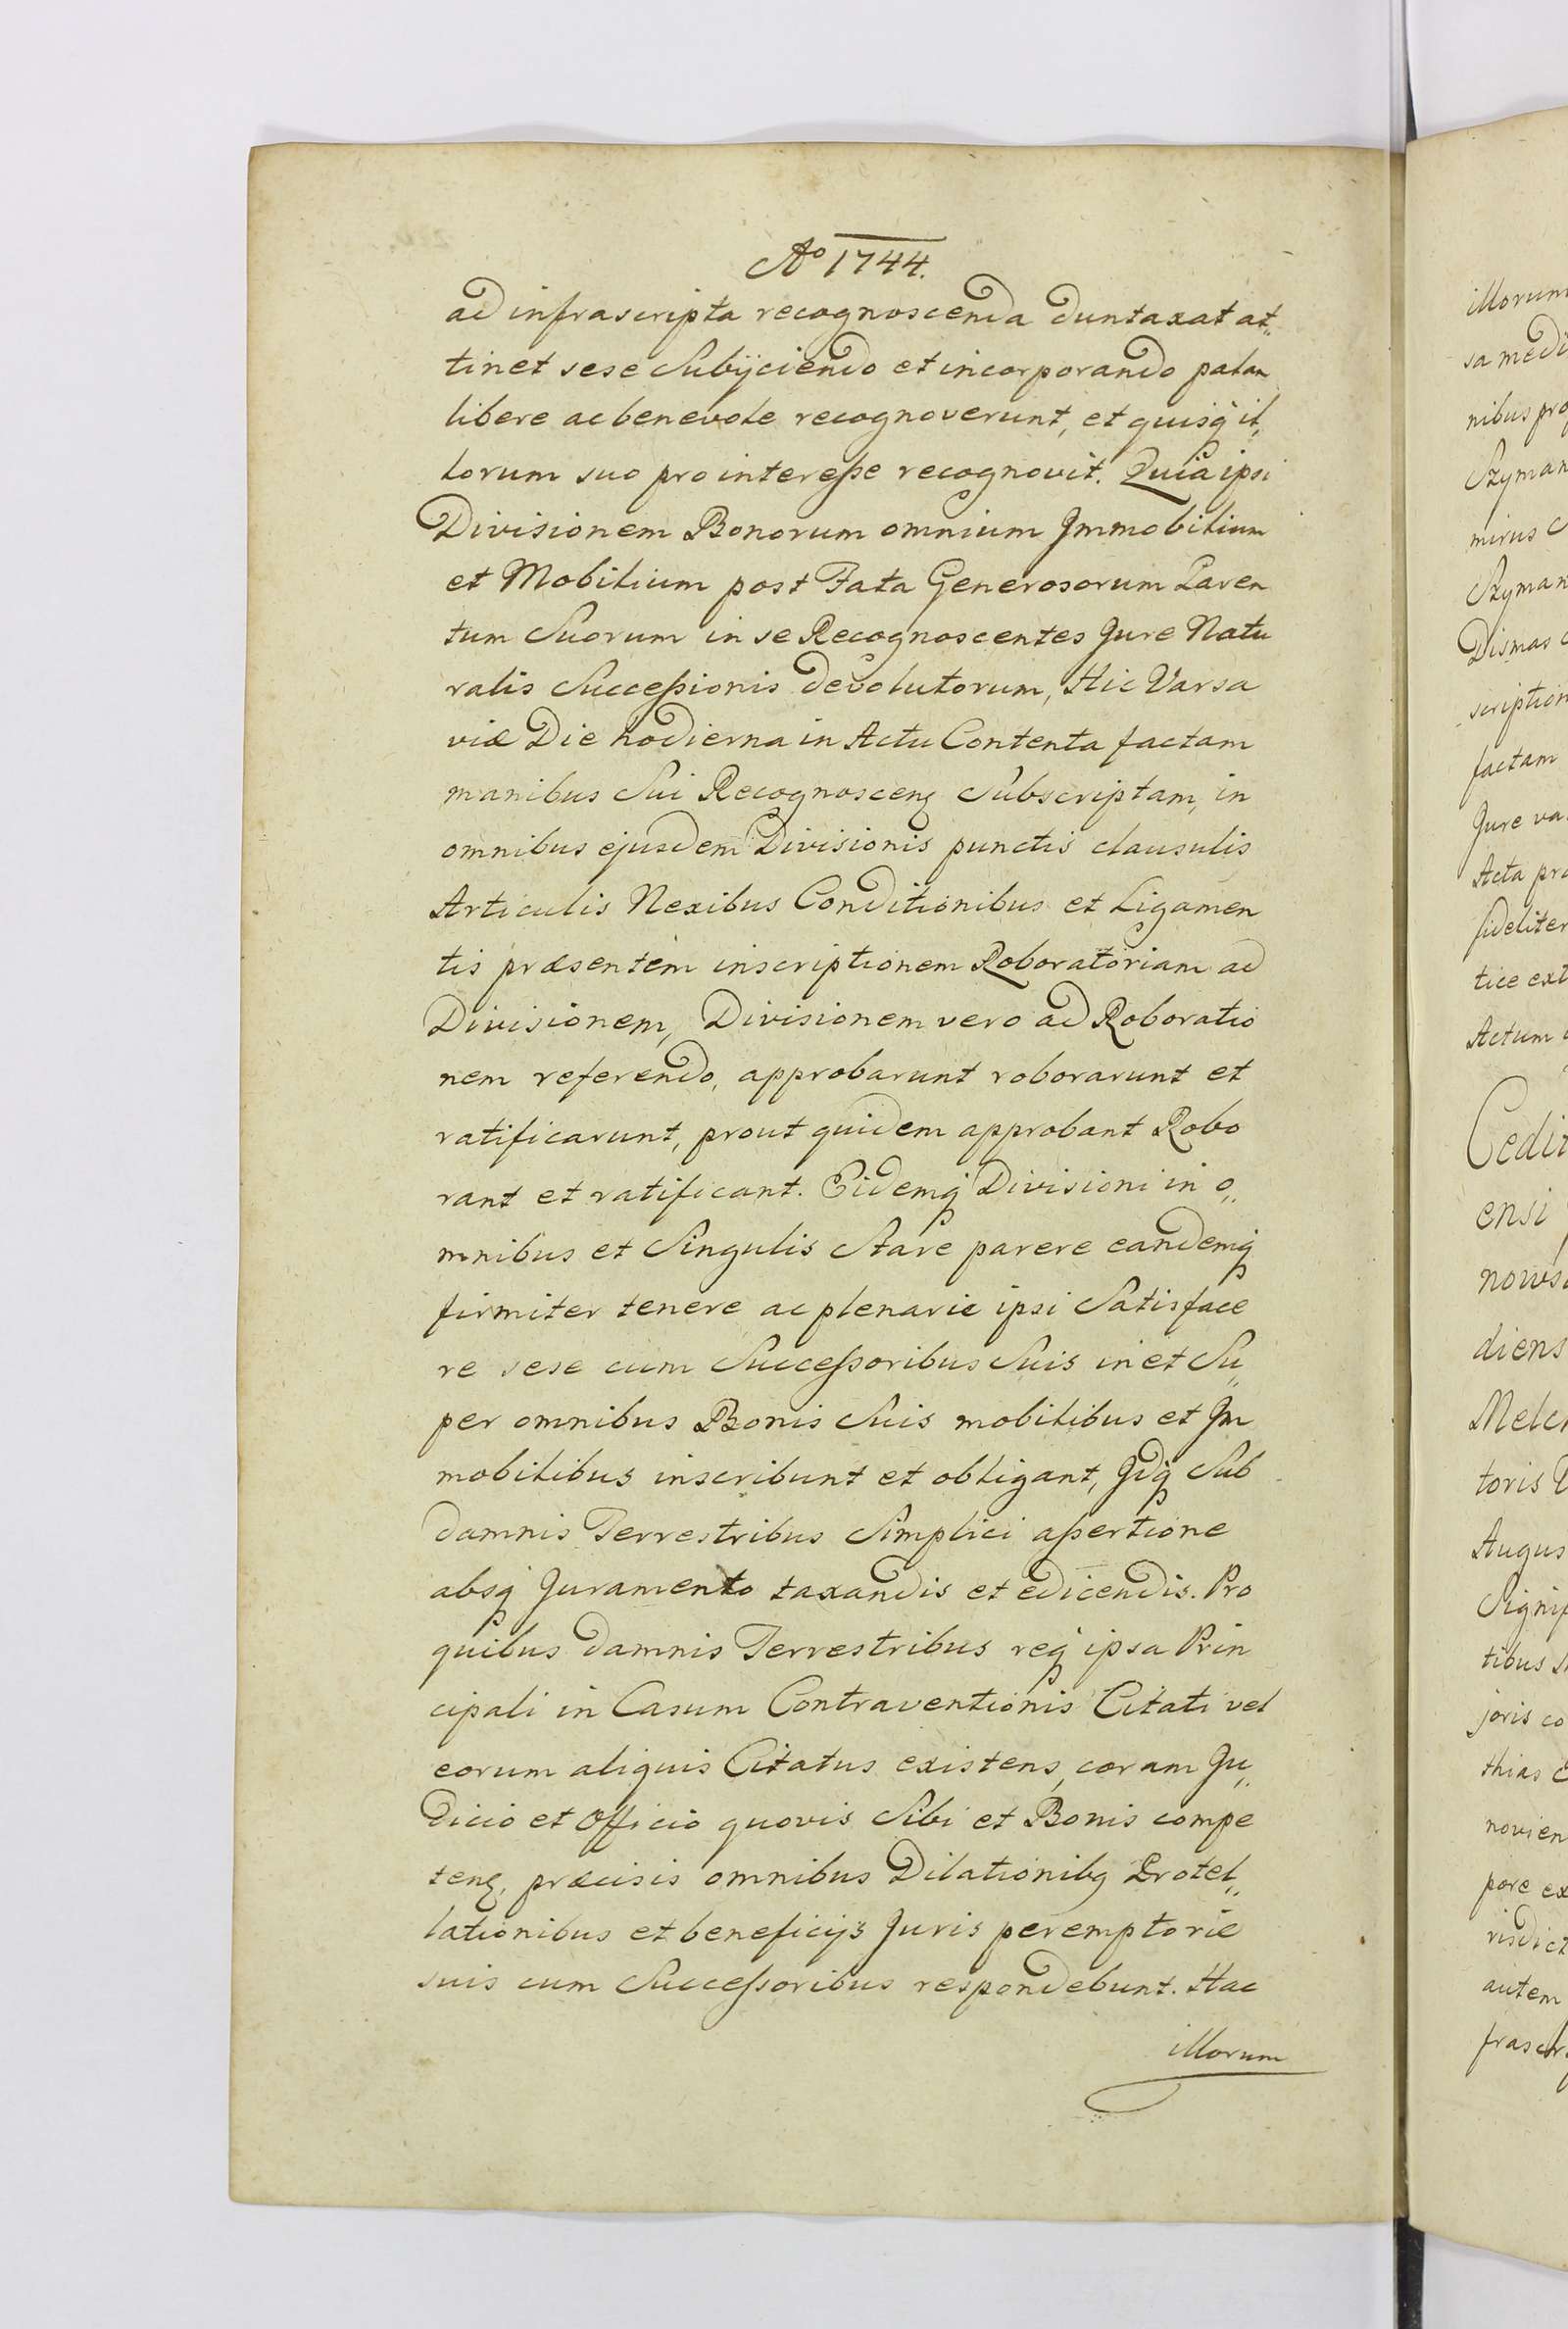 Aº 1744.
ad infrascripta recognoscenda duntaxat at„
tinet sese Subÿciendo et incorporando palam
libere ac benevole recognoverunt, et quisq il„
lorum suo pro interesse recognovit. Quia ipsi
Divisionem Bonorum omnium Immobilium
et Mobilium post Fata Generosorum Paren
tum Suorum in se Recognoscentes Jure Natu
ralis Successionis devolutorum, Hic Varsa
viæ Die hodierna in Actu Contenta factam
manibus Sui Recognoscenꝫ Subscriptam, in
omnibus ejusdem Divisionis punctis clausulis
Articulis Nexibus Conditionibus et Ligamen
tis præsentem inscriptionem Roboratoriam ad
Divisionem, Divisionem vero ad Roboratio
nem referendo, approbarunt roborarunt et
ratificarunt, prout quidem approbant Robo
rant et ratificant. Eidemq Divisioni in o„
mnibus et Singulis Stare parere eandemq
firmiter tenere ac plenarie ipsi Satisface
re sese cum Successoribus Suis in et Su„
per omnibus Bonis Suis mobilibus et Im
mobilibus inscribunt et obligant, Idq Sub
damnis Terrestribus Simplici assertione
absq Juramento taxandis et edicendis. Pro
quibus damnis Terrestribus req ipsa Prin
cipali in Casum Contraventionis Citati vel
eorum aliquis Citatus existens, coram Ju„
dicio et Officio quovis Sibi et Bonis compe
tenꝫ, præcisis omnibus Dilationibꝫ Protel„
lationibus et beneficÿs Juris peremptorie
suis cum Successoribus respondebunt. Hac
illorum
illorum
sa medi
nibus pro
Szyman
mirus
Szyman
Dismas
scription
factam
Jure va
Acta pro
fideliter
tice ext
Actum
Cedit
ensi
nows
diens
Melch
toris
Augus
Signif
tibus
joris co
thias
novien
pore ex
risdict
autem
frascr